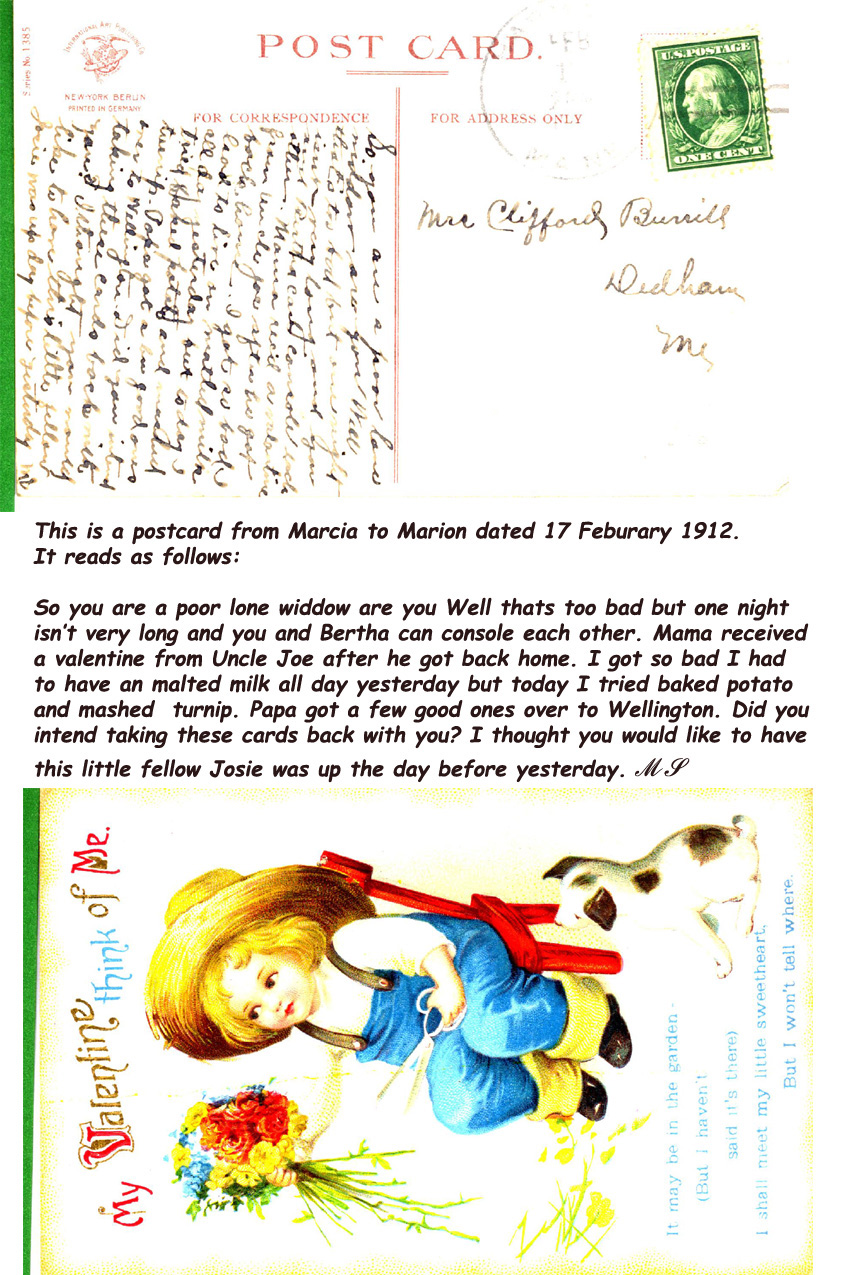 Series No. 1385
INTERNATIONAL ART PUBLISHING CO
NEW-YORK BERLIN
PRINTED IN GERMANY
POST CARD.
FOR CORRESPONDENCE
FOR ADDRESS ONLY
FEB
U.S. POSTAGE
ONE CENT
Mrs Clifford Burrill
Dedham
Me
So you are a poor lone
widdow are you Well
thats too bad but one night
isn't very long and you
and Bertha can console each
other. Mama rec'd a valentine
from Uncle Joe after he got
back home. I got so bad I
had to live on malted milk
all day yesterday but today I
tried baked potato and mashed
turnip. Papa got a few good ones
over to Wellington. Did you intend
taking these cards back with
you? I thought you would
like to have this little fellow
Josie was up day before yesterday MS
This is a postcard from Marcia to Marion dated 17 Feburary 1912.
It reads as follows:
So you are a poor lone widdow are you Well thats too bad but one night
isn't very long and you and Bertha can console each other. Mama received
a valentine from Uncle Joe after he got back home. I got so bad I had
to have an malted milk all day yesterday but today I tried baked potato
and mashed turnip. Papa got a few good ones over to Wellington. Did you
intend taking these cards back with you? I thought you would like to have
this little fellow Josie was up the day before yesterday. MS
My Valentine think of Me.
It may be in the garden -
(But I haven't
said it's there)
I shall meet my little sweetheart,
But I won't tell where.